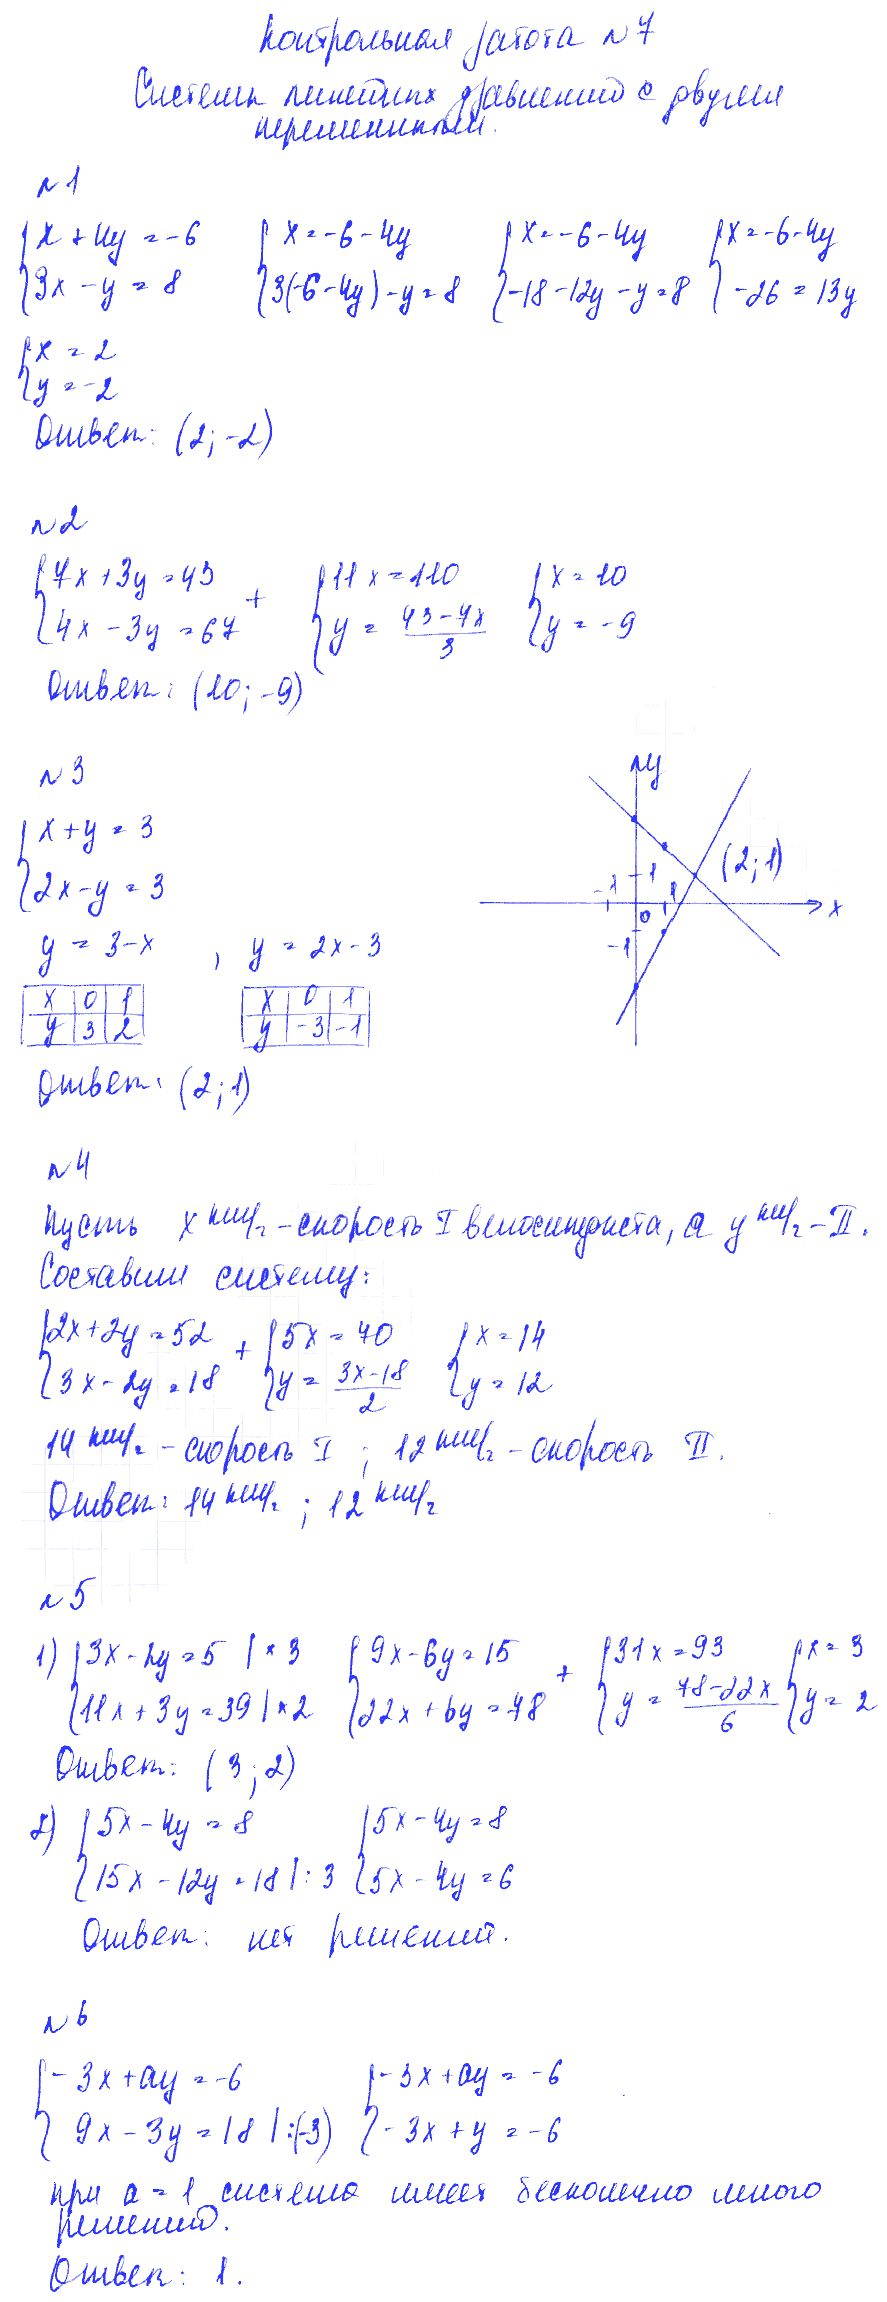 Контрольная работа №7
Системы линейных уравнений с двумя
переменными.
№1
{x + 4y = -6 {x = -6 - 4y {x = -6 - 4y {x = -6 - 4y
{3x - y = 8 {3(-6 - 4y) - y = 8 {-18 - 12y - y = 8 {-26 = 13y
{x = 2
{y = -2
Ответ: (2; -2)
№2
{7x + 3y = 43 + {11x = 110 {x = 10
{4x - 3y = 67 {y = (43 - 7x)/3 {y = -9
Ответ: (10; -9)
№3
{x + y = 3
{2x - y = 3
y = 3 - x , y = 2x - 3
x 0 1 x 0 1
y 3 2 y -3 -1
y
(2; 1)
-1 1 0 1 x
-1
Ответ: (2; 1)
№4
Пусть x км/г - скорость I велосипедиста, а y км/г - II.
Составим систему:
{2x + 2y = 52 + {5x = 70 {x = 14
{3x - 2y = 18 {y = (3x - 18)/2 {y = 12
14 км/г - скорость I ; 12 км/г - скорость II.
Ответ: 14 км/г ; 12 км/г
№5
1) {3x - 2y = 5 | * 3 {9x - 6y = 15 + {31x = 93 {x = 3
{11x + 3y = 39 | * 2 {22x + 6y = 78 {y = (78 - 22x)/6 {y = 2
Ответ: (3; 2)
2) {5x - 4y = 8 {5x - 4y = 8
{15x - 12y = 18 | : 3 {5x - 4y = 6
Ответ: нет решений.
№6
{-3x + ay = -6 {-3x + ay = -6
{9x - 3y = 18 | :(-3) {-3x + y = -6
при a = 1 система имеет бесконечно много
решений.
Ответ: 1.